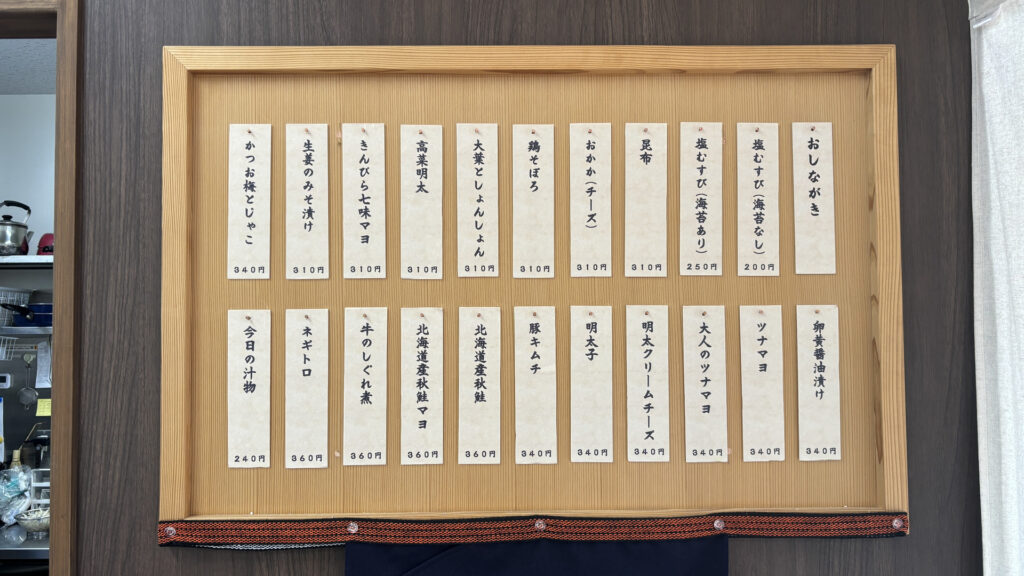 おしながき
塩むすび(海苔なし)
200円
塩むすび(海苔あり)
250円
昆布
310円
おかか(チーズ)
310円
鶏そぼろ
310円
大葉としょんしょん
310円
高菜明太
310円
きんぴら七味マヨ
310円
生姜のみそ漬け
310円
かつお梅とじゃこ
340円
卵黄醬油漬け
340円
ツナマヨ
340円
大人のツナマヨ
340円
明太クリームチーズ
340円
明太子
340円
豚キムチ
340円
北海道産秋鮭
360円
北海道産秋鮭マヨ
360円
牛のしぐれ煮
360円
ネギトロ
360円
今日の汁物
240円